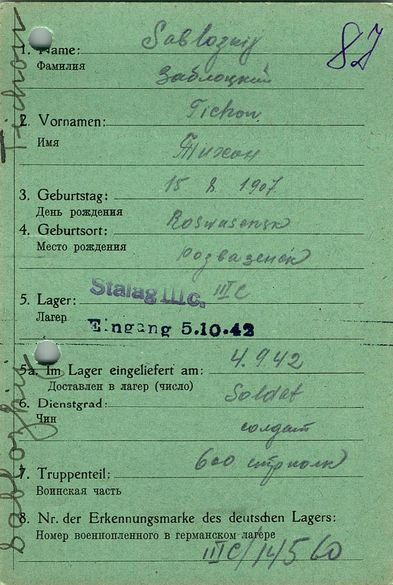 87
Sablozkij
1. Name:
Фамилия
Заблоцкий
Tichon
2. Vornamen:
Имя
Тихон
3. Geburtstag: 15 8. 1907
День рождения
4. Geburtsort: Roswasensk
Место рождения
розвазенск
5. Lager: Stalag III c. III C
Лагер
Eingang 5.10.42
5a. Im Lager eingeliefert am: 4.9.42
Доставлен в лагер (число)
6. Dienstgrad: Soldat
Чин
солдат
7. Truppenteil: 600 стрполк
Воинская часть
8. Nr. der Erkennungsmarke des deutschen Lagers:
Номер военнопленного в германском лагере
III C/14560
Sablozkij
Tichon